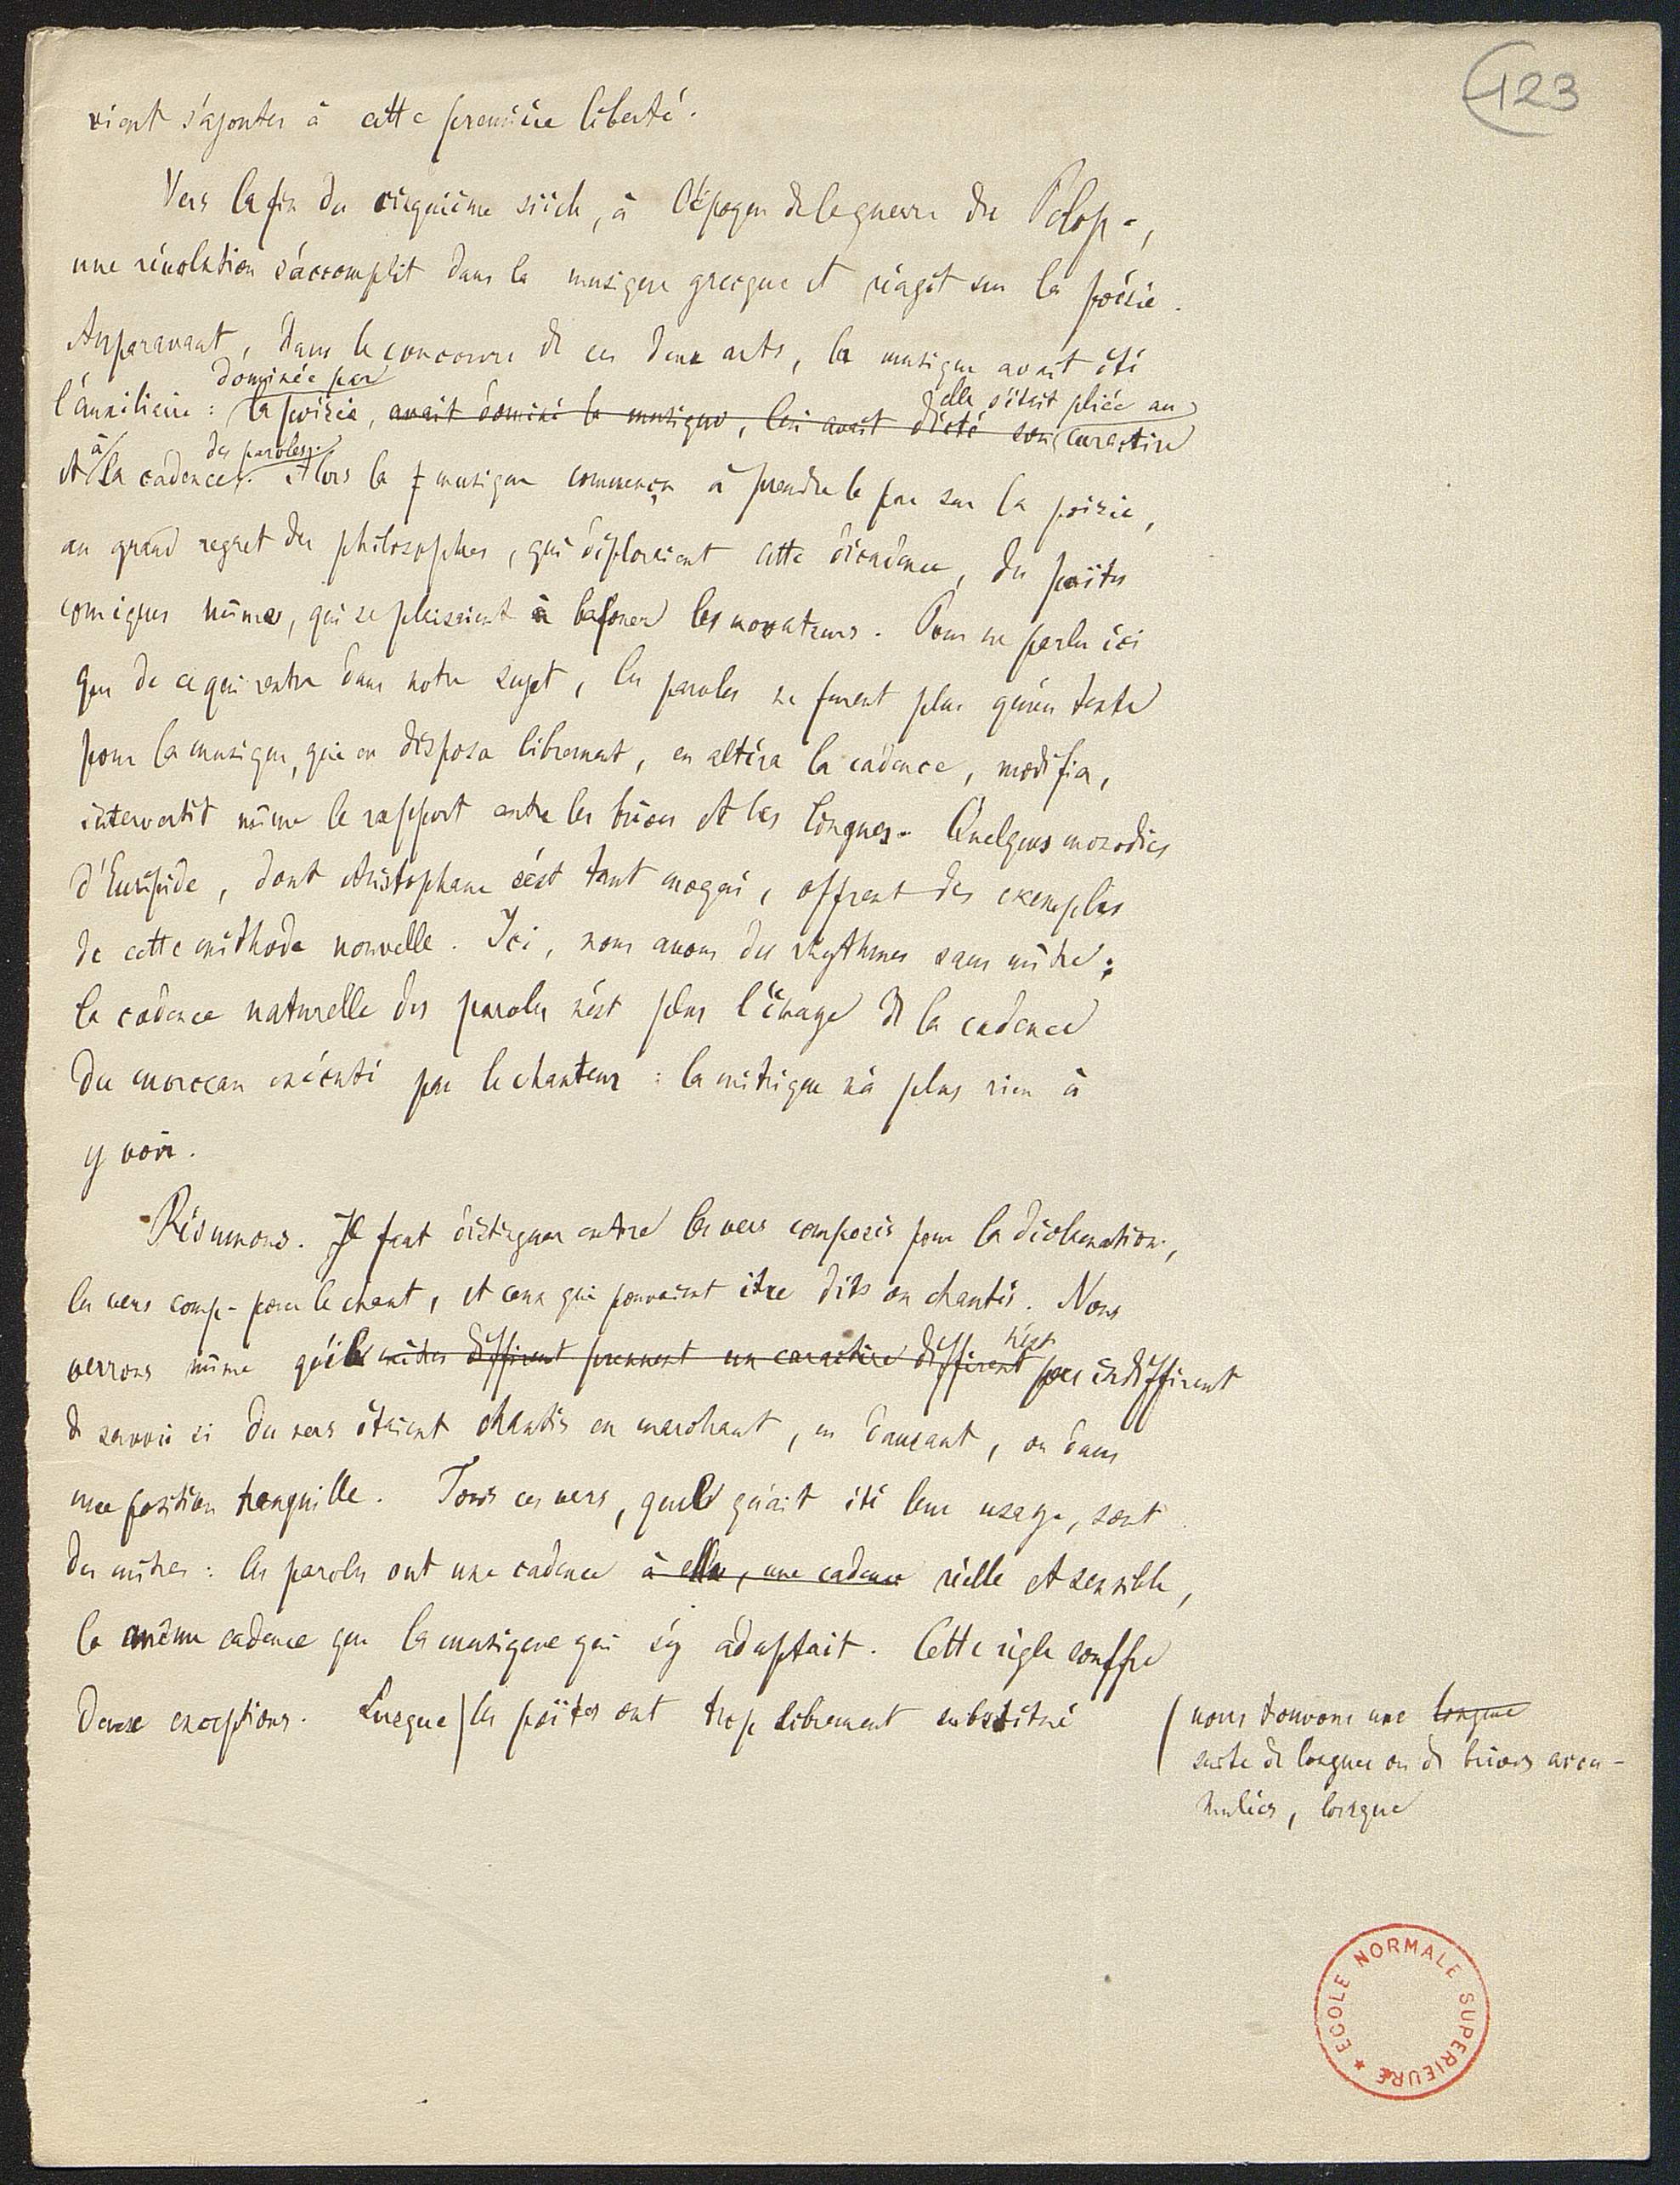 123
vient s'ajouter à cette première liberté.
Vers la fin du cinquième siècle, à l'époque de la guerre du Pélop-,
une révolution s'accomplit dans la musique grecque et réagit sur la poésie.
Auparavant, dans le concours de ces deux arts, la musique avait été
dominée par
elle s'était pliée au
l'auxiliaire : la poésie, avait dominé la musique, lui avait dicté son caractère
à
des paroles.
et la cadence. Alors la musique commença à prendre le pas sur la poésie,
au grand regret des philosophes, qui déploraient cette décadence, des poètes
comiques mêmes, qui se plaisaient à bafouer les novateurs. Pour ne parler ici
que de ce qui rentre dans notre sujet, les paroles ne furent plus qu'un texte
pour la musique, qui en disposa librement, en altéra la cadence, modifia,
intervertit même le rapport entre les brèves et les longues. Quelques monodies
d'Euripide, dont Aristophane s'est tant moqué, offrent des exemples
de cette méthode nouvelle. Ici, nous avons des rhythmes sans mètre ;
la cadence naturelle des paroles n'est plus l'image de la cadence
du morceau exécuté par le chanteur : la métrique n'a plus rien à
y voir.
Résumons. Il faut distinguer entre les vers composés pour la déclamation,
les vers comp- pour le chant, et ceux qui pouvaient être dits ou chantés. Nous
n'est
verrons même qu'il mètres différent prennent un caractère différent pas indifférent
de savoir si des vers étaient chantés en marchant, en dansant, ou dans
une position tranquille. Tous ces vers, quel qu'ait été leur usage, sont
des mètres : les paroles ont une cadence à elles, une cadence réelle et sensible,
la même cadence que la musique qui s'y adaptait. Cette règle souffre
deux exceptions. Lorsque | les poètes ont trop librement substitué
| nous trouvons une longue
suite de longues ou de brèves accu-
mulées, lorsque
ECOLE NORMALE SUPERIEURE